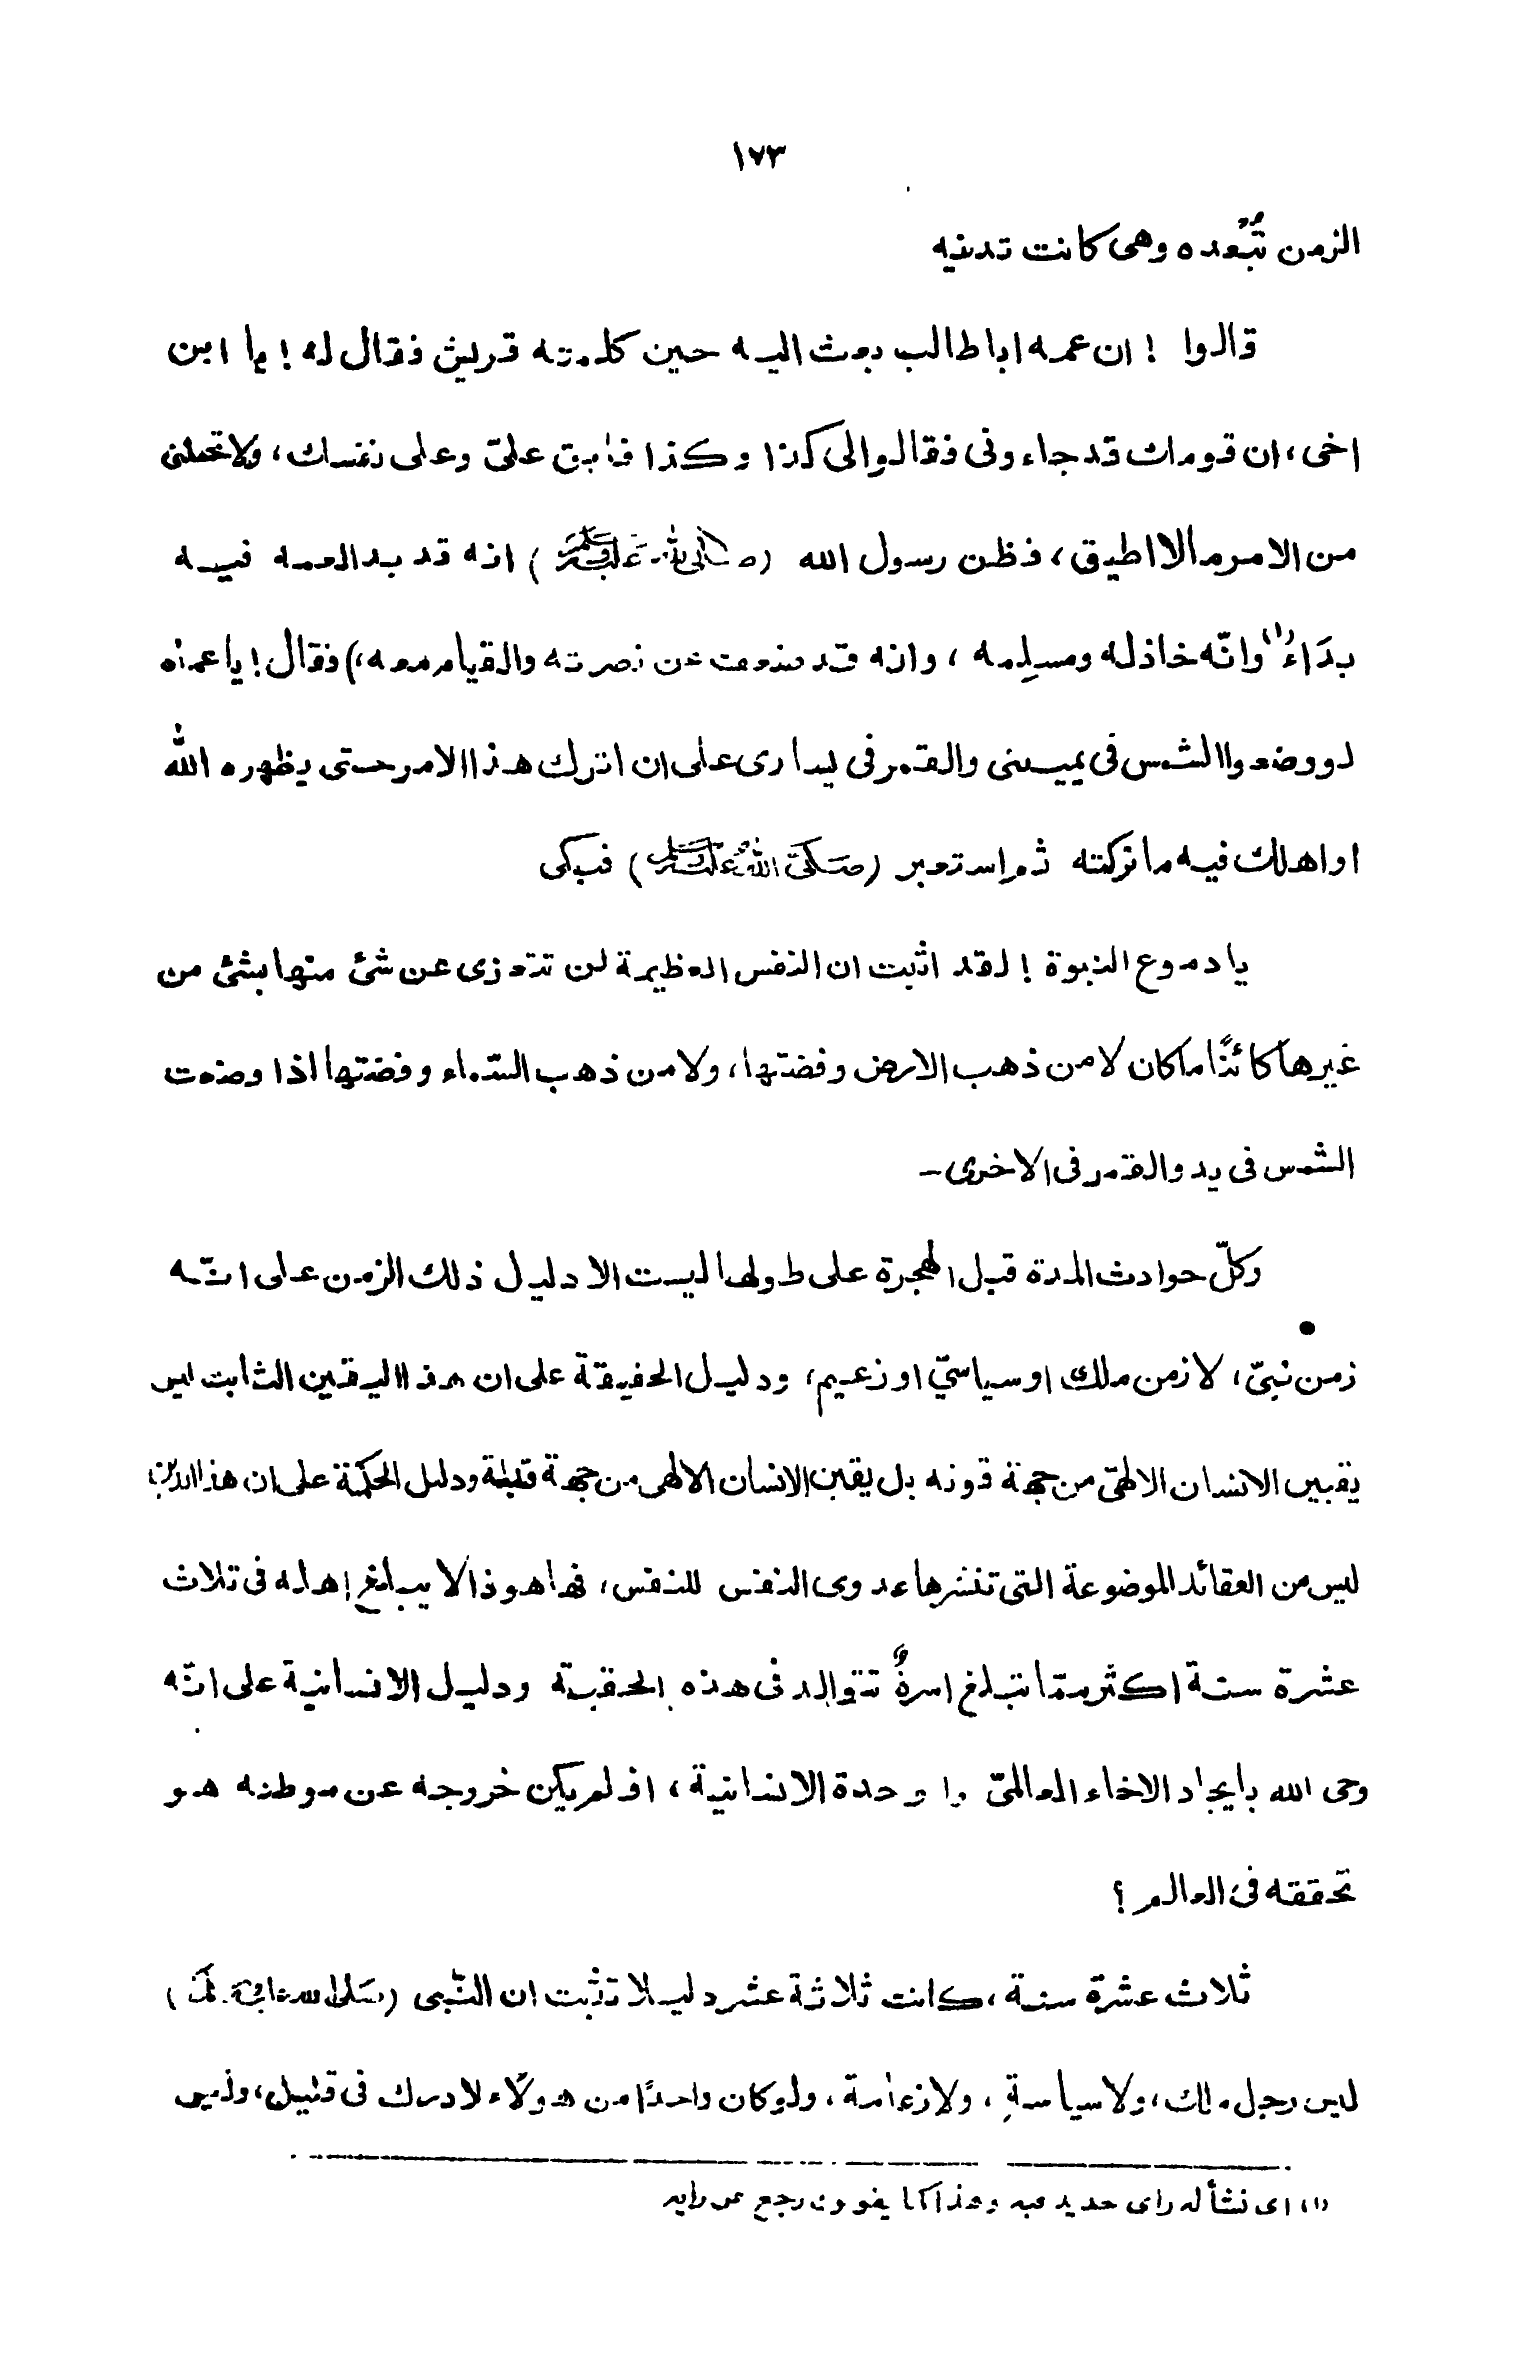 ١٧٣
الزمن تُبْعده وهى كانت تدنيه
قالوا ! ان عمه ابا طالب بعث اليه حين كلمته قريش فقال له ! يا ابن
اخى، ان قومك قد جاءونى فقالوا لى كذا وكذا فابق علىّ وعلى نفسك، ولا تحملنى
من الامر ما لا اطيق، فظن رسول الله (صلى الله عليه وسلم) انه قد بدا لعمه فيه
بدَاءٌ(١) وانّه خاذله ومسلِمه، وانه قد ضعف عن نصرته والقيام معه،) فقال! يا عماه
لو وضعوا الشمس فى يمينى والقمر فى يسارى على ان اترك هذا الامر حتى يظهره الله
او اهلك فيه ما تركته ثم استعبر (صَلَّى اللهُ عَلَيْهِ وَسَلَّمَ) فبكى
يا دموع النبوة ! لقد اثبت ان النفس العظيمة لن تتعزى عن شئ منها بشئ من
غيرها كائنًا ما كان لا من ذهب الارض وفضتها، ولا من ذهب السّماء وفضتها اذا وضعت
الشمس فى يد والقمر فى الاخرى –
وكلّ حوادث المدة قبل الهجرة على طولها ليست الا دليل ذلك الزمن على انّه
زمن نبىّ، لا زمن ملك او سياسىّ او زعيم، ودليل الحقيقة على ان هذا اليقين الثابت ليس
يقين الانسان الالهىّ من جهة قوته بل يقين الانسان الالهى من جهة قلبه ودليل الحكمة على ان هذا الدين
ليس من العقائد الموضوعة التى تنشرها عدوى النفس للنفس، فها هو ذا لا يبلغ اهله فى ثلاث
عشرة سنة اكثر ممّا تبلغ اسرةٌ تتوالد فى هذه الحقبة ودليل الانسانية على انّه
وحى الله بايجاد الاخاء العالمىّ والوحدة الانسانية، افلم يكن خروجه عن موطنه هو
تحققه فى العالم؟
ثلاث عشرة سنة، كانت ثلاثة عشر دليلا تثبت ان النّبى (صلى الله عليه وسلم)
ليس رجل ملك، ولا سياسةٍ، ولا زعامة، ولو كان واحدًا من هؤلاء لادرك فى قليل، وليس
(١) اى نشأ له راى جديد فيه وهذا كما يقولون رجع عن رايه